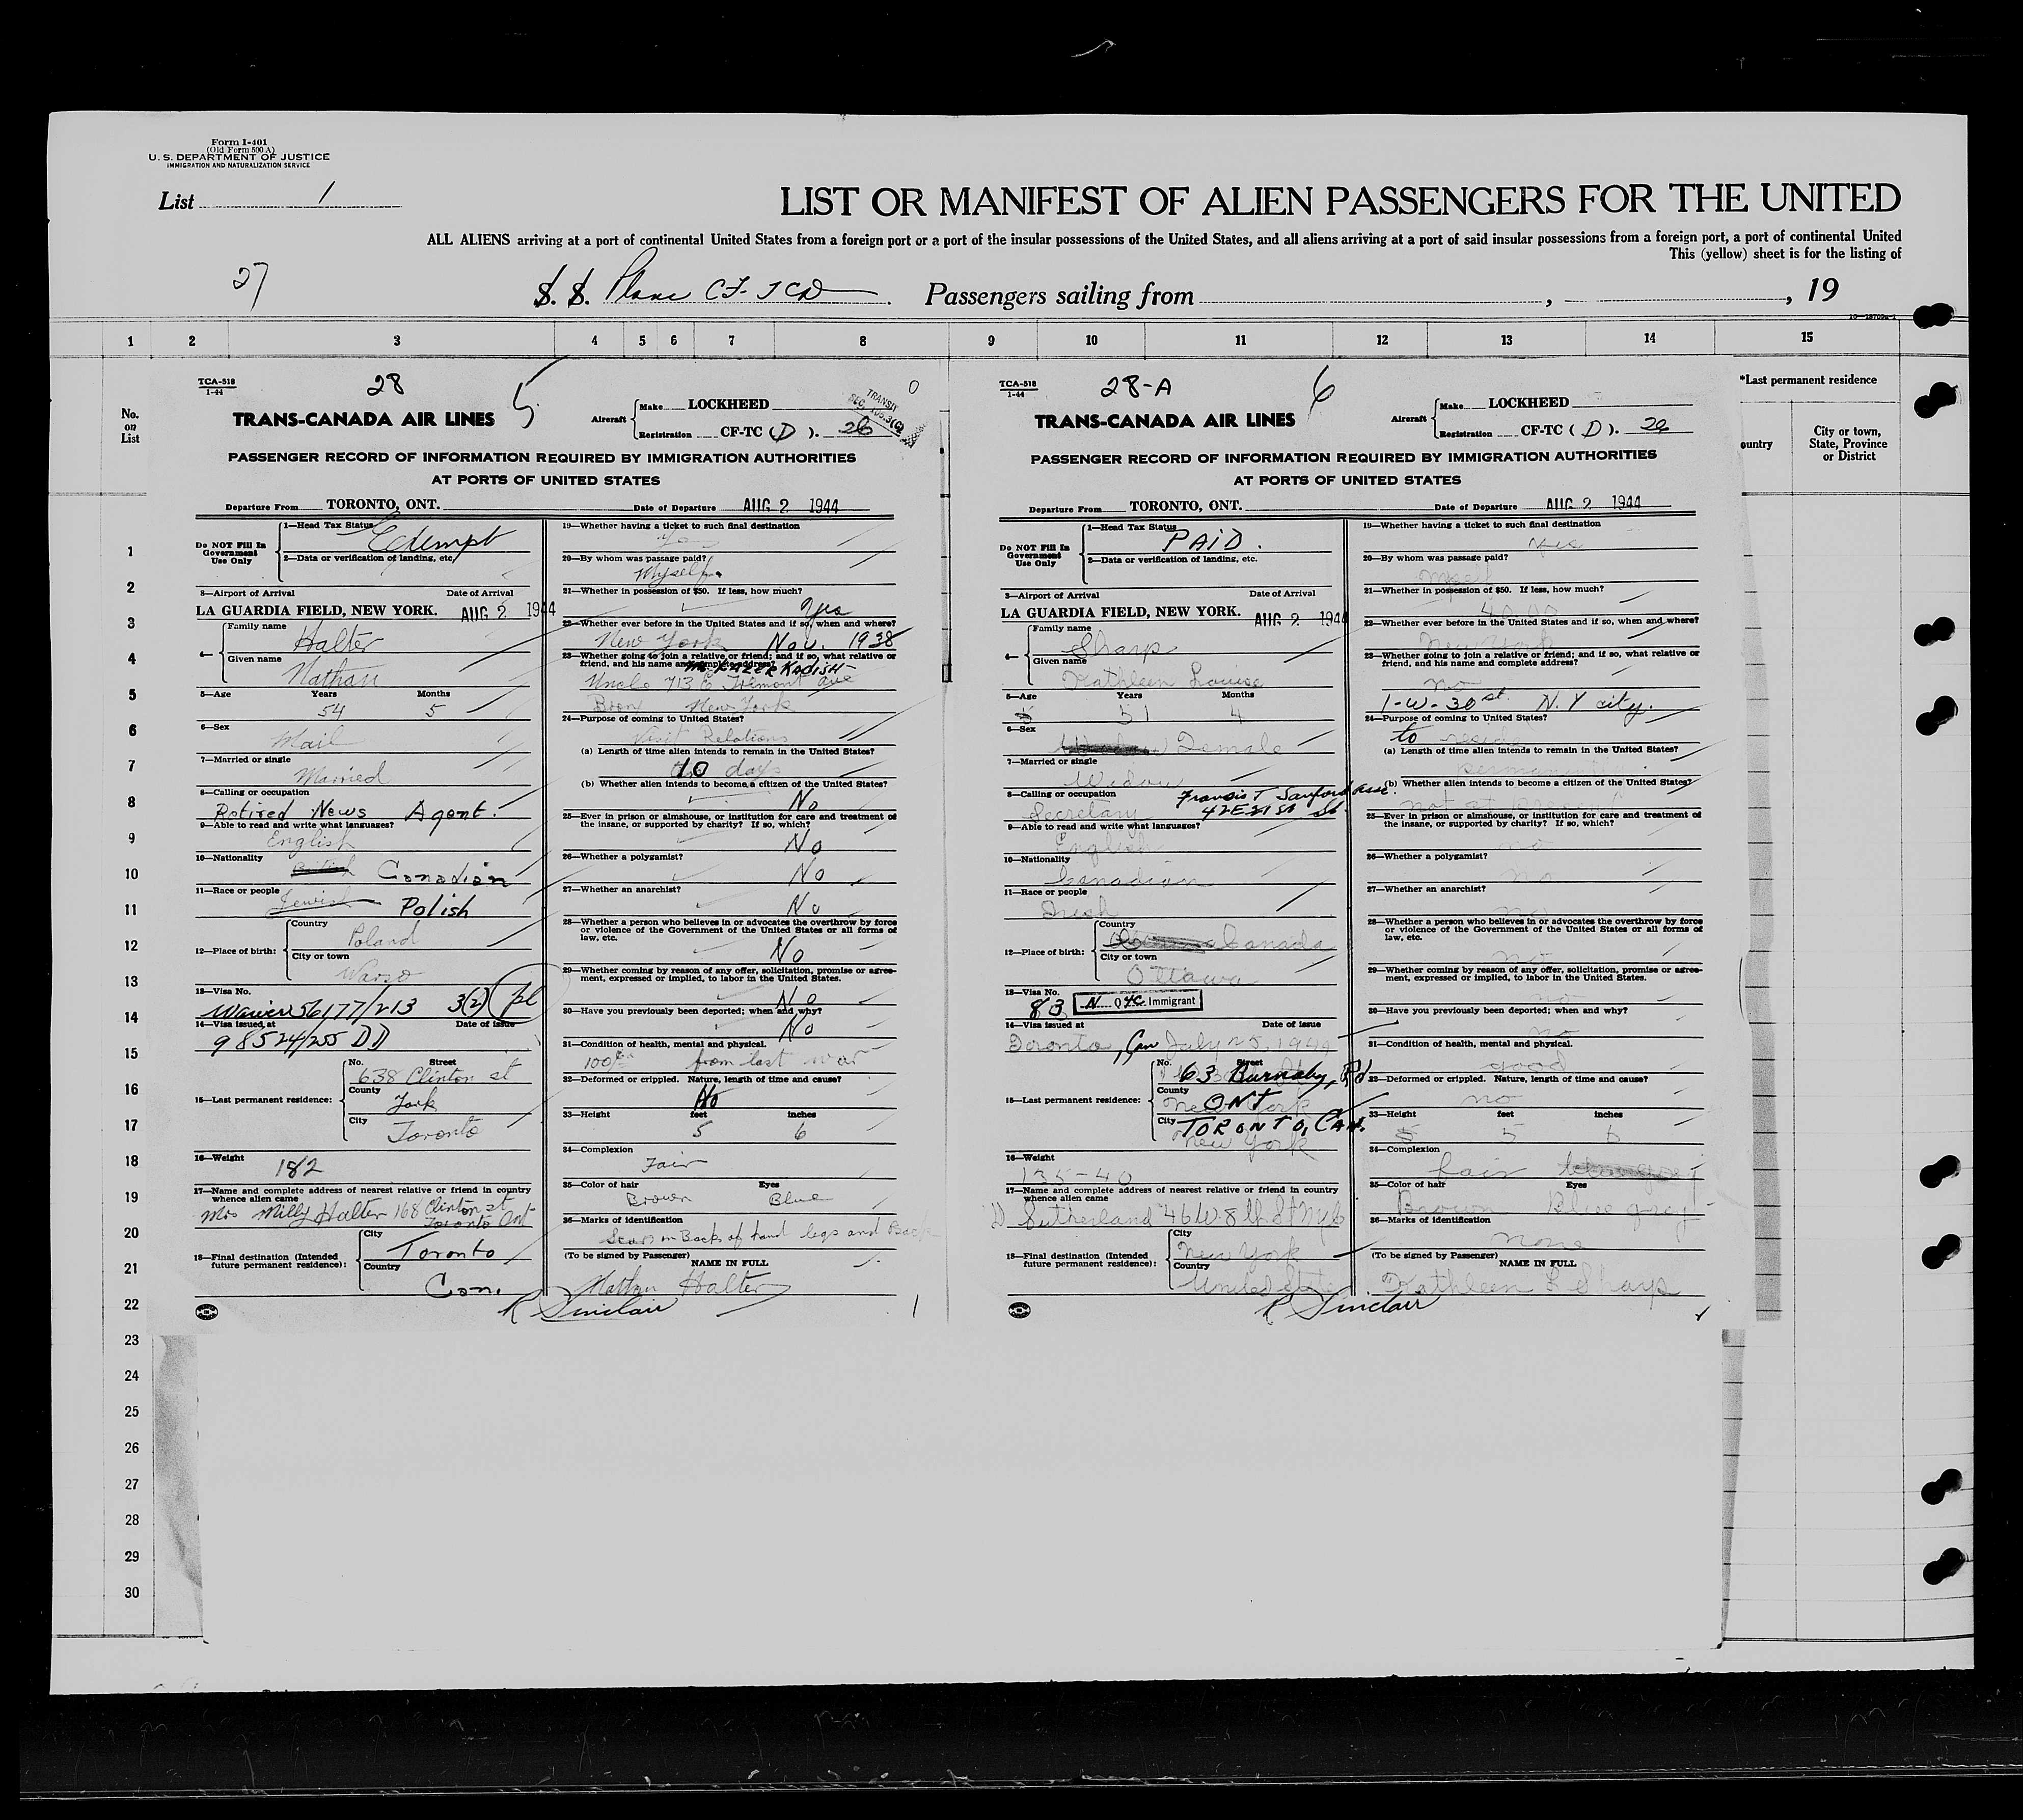 Form I-401
(Old Form 500 A)
U. S. DEPARTMENT OF JUSTICE
IMMIGRATION AND NATURALIZATION SERVICE
List 1
LIST OR MANIFEST OF ALIEN PASSENGERS FOR THE UNITED
ALL ALIENS arriving at a port of continental United States from a foreign port or a port of the insular possessions of the United States, and all aliens arriving at a port of said insular possessions from a foreign port, a port of continental United
This (yellow) sheet is for the listing of
27
S. S. Plane CF-TCD Passengers sailing from , , 19
1 2 3 4 5 6 7 8 9 10 11 12 13 14 15
No.
on
List
*Last permanent residence
ountry
City or town,
State, Province
or District
1
2
3
4
5
6
7
8
9
10
11
12
13
14
15
16
17
18
19
20
21
22
23
24
25
26
27
28
29
30
TCA-518
1-44
28 5 0
TRANS-CANADA AIR LINES
Aircraft
Make LOCKHEED
Registration CF-TC (D). 26
TRANSIT
PASSENGER RECORD OF INFORMATION REQUIRED BY IMMIGRATION AUTHORITIES
AT PORTS OF UNITED STATES
Departure From TORONTO, ONT. Date of Departure AUG 2 1944
Do NOT Fill In
Government
Use Only
1—Head Tax Status Exempt
2—Data or verification of landing, etc.
3—Airport of Arrival Date of Arrival
LA GUARDIA FIELD, NEW YORK. AUG 2 1944
4—
Family name
Halter
Given name
Nathan
5—Age Years Months
54 5
6—Sex
Mail
7—Married or single
Married
8—Calling or occupation
Retired News Agent.
9—Able to read and write what languages?
English
10—Nationality
British Canadian
11—Race or people
Jewish Polish
12—Place of birth:
Country
Poland
City or town
Warso
13—Visa No.
Waiver 56177/213 3(2) pl
14—Visa issued at Date of issue
98524/255 DD
15—Last permanent residence:
No. Street
638 Clinton st
County
York
City
Toronto
16—Weight
182
17—Name and complete address of nearest relative or friend in country
whence alien came
Mrs Milly Halter 168 Clinton st
Toronto Ont
18—Final destination (Intended
future permanent residence):
City
Toronto
Country
Can.
19—Whether having a ticket to such final destination
20—By whom was passage paid?
Myself.
21—Whether in possession of $50. If less, how much?
Yes
22—Whether ever before in the United States and if so, when and where?
New York Nov. 1938
23—Whether going to join a relative or friend; and if so, what relative or
friend, and his name and complete address?
Mr. LAZER Kadish
Uncle 713 E Tremont ave
Bronx New York
24—Purpose of coming to United States?
Visit Relations
(a) Length of time alien intends to remain in the United States?
10 days
(b) Whether alien intends to become a citizen of the United States?
No
25—Ever in prison or almshouse, or institution for care and treatment of
the insane, or supported by charity? If so, which?
No
26—Whether a polygamist?
No
27—Whether an anarchist?
No
28—Whether a person who believes in or advocates the overthrow by force
or violence of the Government of the United States or all forms of
law, etc.
No
29—Whether coming by reason of any offer, solicitation, promise or agree-
ment, expressed or implied, to labor in the United States.
No
30—Have you previously been deported; when and why?
No
31—Condition of health, mental and physical.
100% from last war
32—Deformed or crippled. Nature, length of time and cause?
No
33—Height feet inches
5 6
34—Complexion
Fair
35—Color of hair Eyes
Brown Blue
36—Marks of identification
Scars on Backs of hand legs and Back
(To be signed by Passenger)
NAME IN FULL
Nathan Halter
R Sinclair
1
TCA-518
1-44
28-A 6
TRANS-CANADA AIR LINES
Aircraft
Make LOCKHEED
Registration CF-TC (D). 26
PASSENGER RECORD OF INFORMATION REQUIRED BY IMMIGRATION AUTHORITIES
AT PORTS OF UNITED STATES
Departure From TORONTO, ONT. Date of Departure AUG 2 1944
Do NOT Fill In
Government
Use Only
1—Head Tax Status
PAID.
2—Data or verification of landing, etc.
3—Airport of Arrival Date of Arrival
LA GUARDIA FIELD, NEW YORK. AUG 2 1944
4—
Family name
Sharp
Given name
Kathleen Louise
5—Age Years Months
51 4
6—Sex
Female
7—Married or single
Widow
8—Calling or occupation
Secretary Francis T Sanford Assc.
42 E 21 St
9—Able to read and write what languages?
English
10—Nationality
Canadian
11—Race or people
Irish
12—Place of birth:
Country
Canada
City or town
Ottawa
13—Visa No.
83 N. Q 4C Immigrant
14—Visa issued at Date of issue
Toronto, Can July 25, 1944
15—Last permanent residence:
No. Street
63 Burnaby, Rd
County
ONT
New York
City
TORONTO, CAN.
New York
16—Weight
135-40
17—Name and complete address of nearest relative or friend in country
whence alien came
Sutherland 46 W. 8th St NYC
18—Final destination (Intended
future permanent residence):
City
New York
Country
United States
19—Whether having a ticket to such final destination
Yes
20—By whom was passage paid?
Myself
21—Whether in possession of $50. If less, how much?
40.00
22—Whether ever before in the United States and if so, when and where?
New York
23—Whether going to join a relative or friend; and if so, what relative or
friend, and his name and complete address?
no
1-W-30 st. N.Y city.
24—Purpose of coming to United States?
to reside
(a) Length of time alien intends to remain in the United States?
permanent
(b) Whether alien intends to become a citizen of the United States?
not at present
25—Ever in prison or almshouse, or institution for care and treatment of
the insane, or supported by charity? If so, which?
no
26—Whether a polygamist?
no
27—Whether an anarchist?
no
28—Whether a person who believes in or advocates the overthrow by force
or violence of the Government of the United States or all forms of
law, etc.
no
29—Whether coming by reason of any offer, solicitation, promise or agree-
ment, expressed or implied, to labor in the United States.
no
30—Have you previously been deported; when and why?
no
31—Condition of health, mental and physical.
good
32—Deformed or crippled. Nature, length of time and cause?
no
33—Height feet inches
5 6
34—Complexion
fair
35—Color of hair Eyes
Brown Blue grey
36—Marks of identification
none
(To be signed by Passenger)
NAME IN FULL
Kathleen L Sharp
R Sinclair